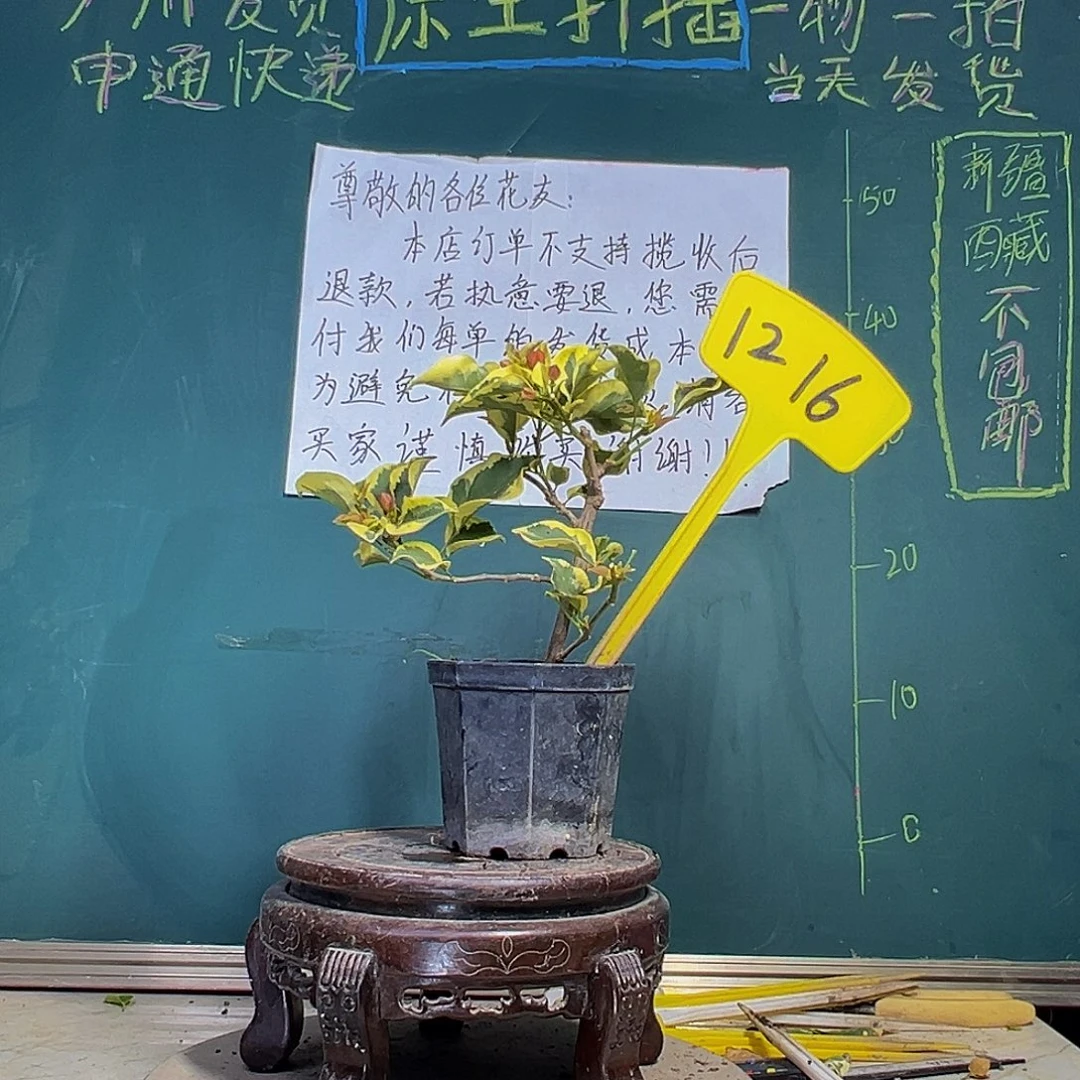 广州发货 原土扦插 一物一拍
申通快递 当天发货
尊敬的各位花友：
本店订单不支持揽收后
退款，若执意要退，您需
付我们每单的发货成本
为避免
买家谨慎 谢！
1216
50
40
20
10
0
新疆
西藏
不包邮